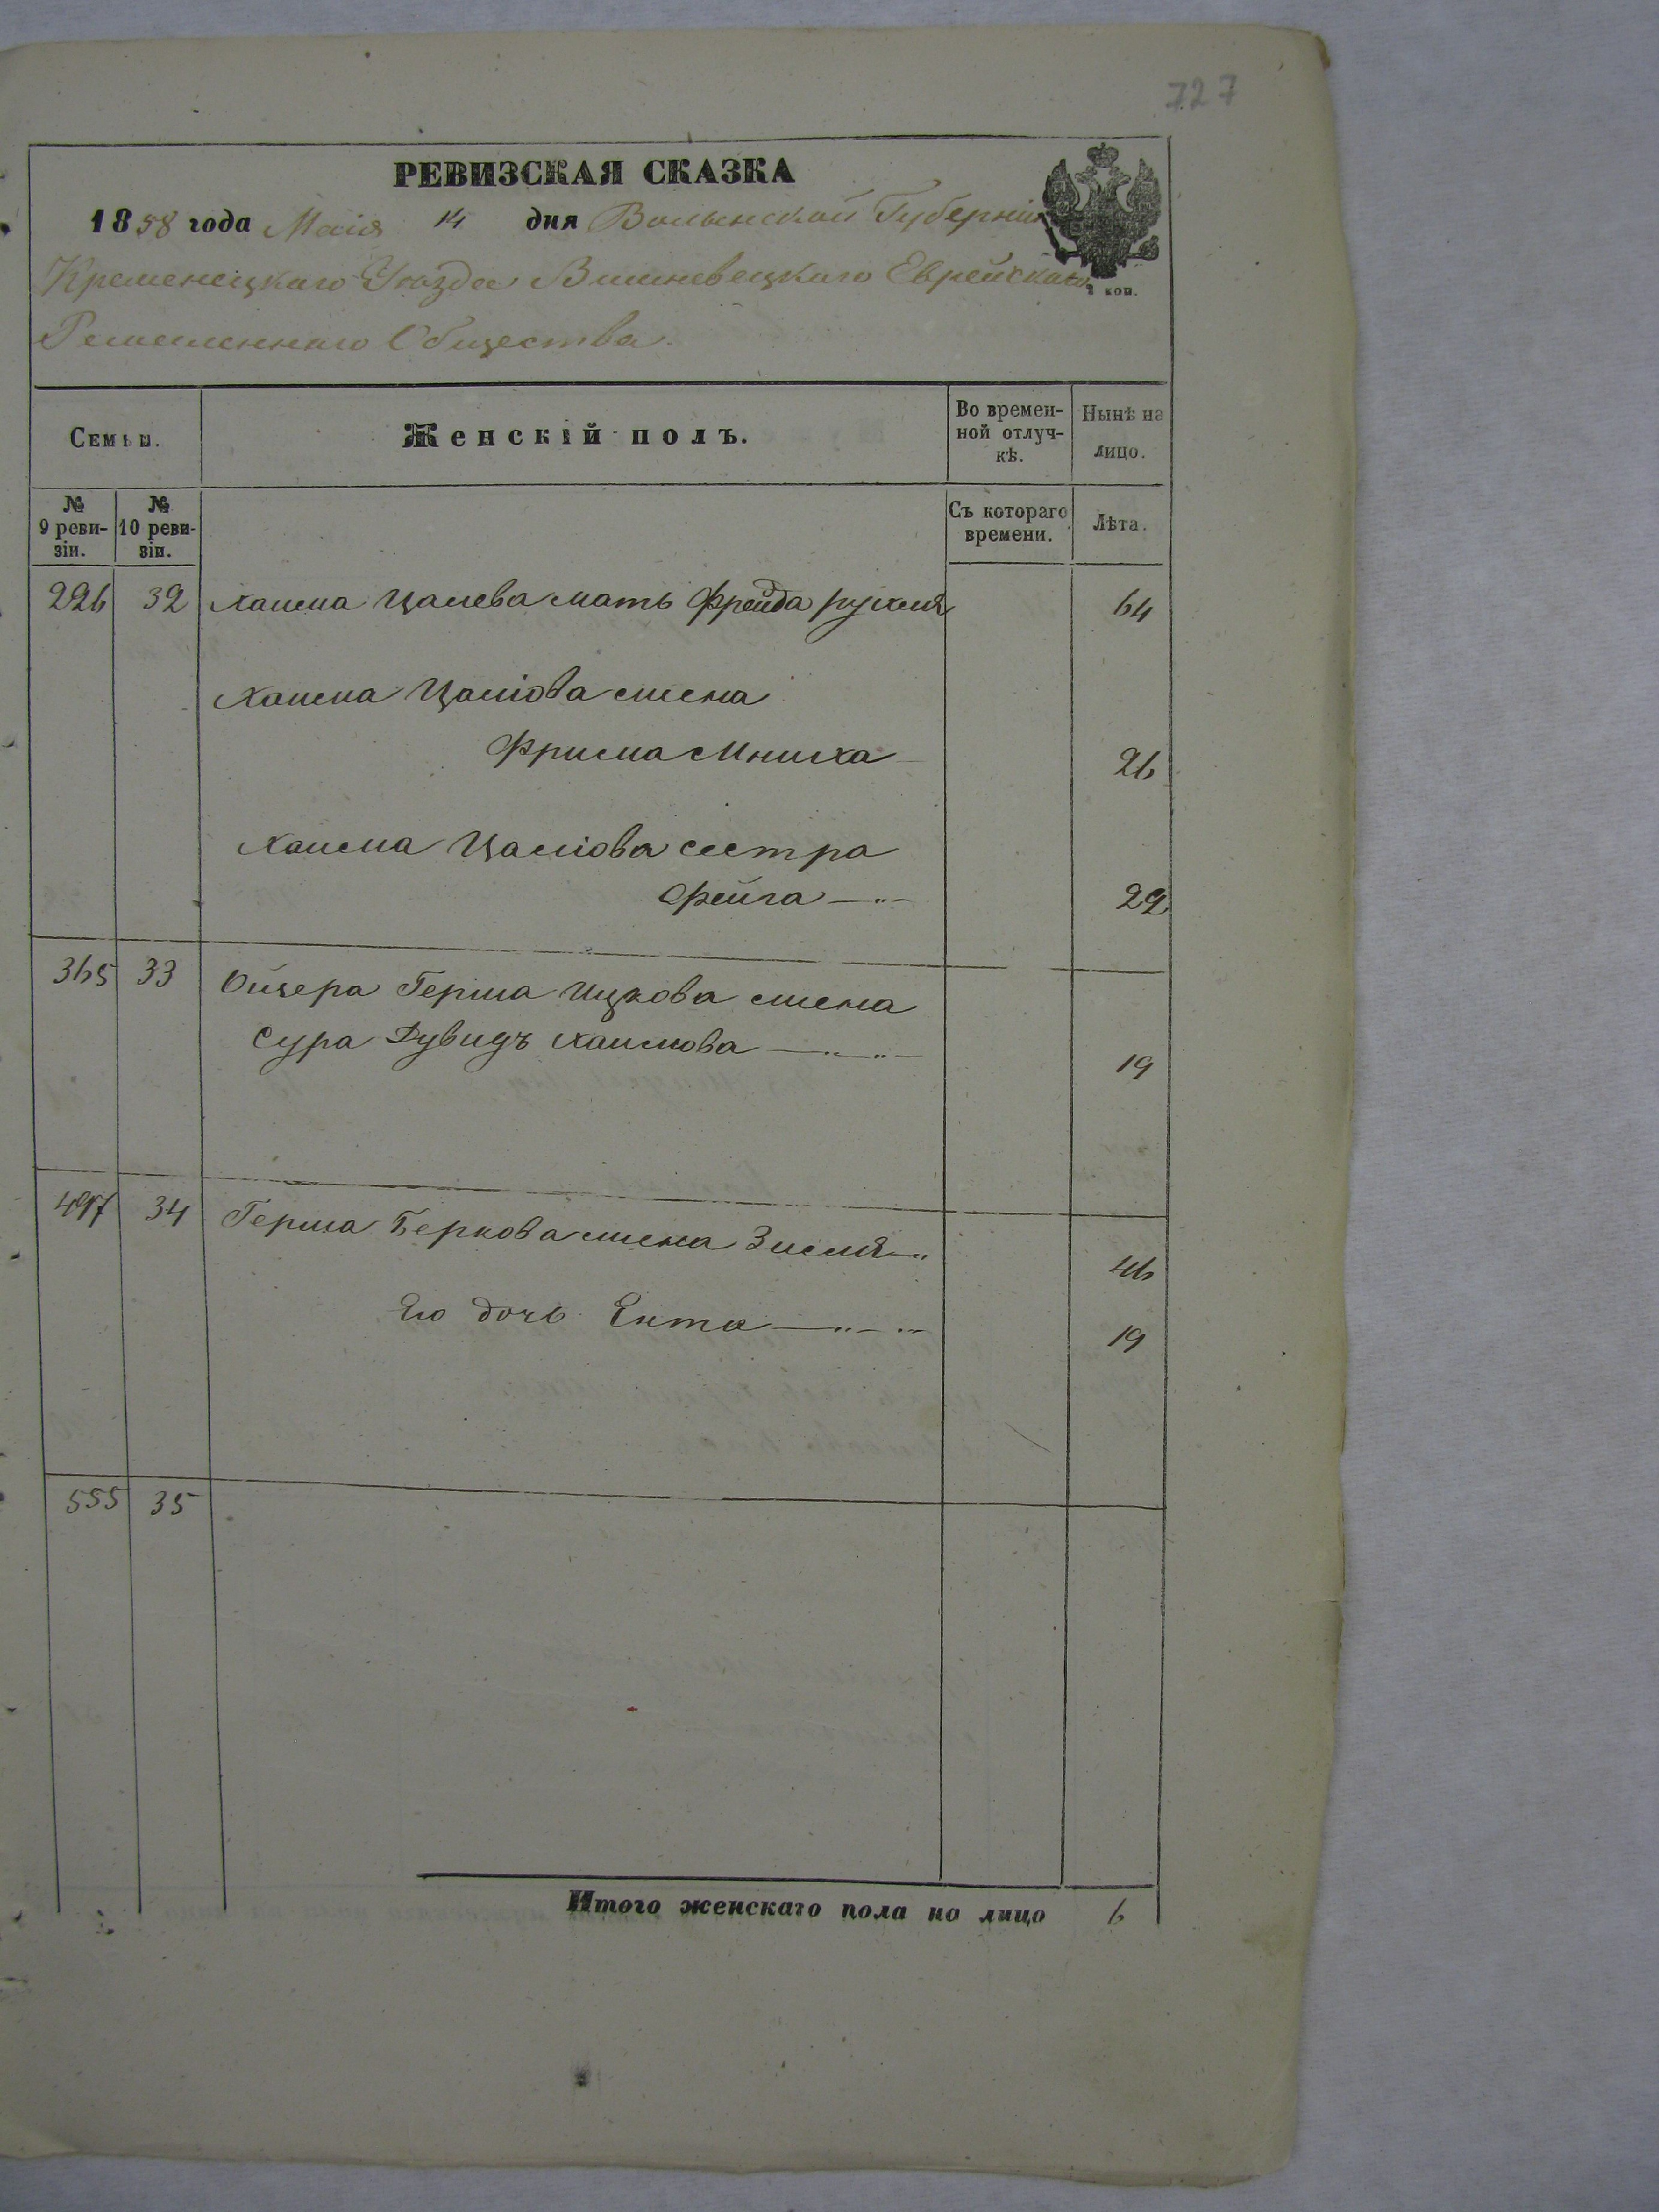 727
РЕВИЗСКАЯ СКАЗКА
1858 года Маія 14 дня Волынской Губерніи
Кременецкаго Уѣзда Вишневецкаго Еврейскаго
Ремесленнаго Общества.
коп.
Семьи.
Женскій полъ.
Во времен-
ной отлуч-
кѣ.
Нынѣ на
лицо.
№
9 реви-
зіи.
№
10 реви-
зіи.
Съ котораго
времени.
Лѣта.
226 32 Хаима Цалева мать Фрейда Рухля 64
Хаима Цаліова жена
Фрима Мниха 26
Хаима Цаліова сестра
Фейга 29
365 33 Ойзера Герша Ицкова жена
Сура Дувидъ Хаимова 19
497 34 Герша Беркова жена Зисля 46
Его дочь Ента 19
555 35
Итого женскаго пола на лицо 6